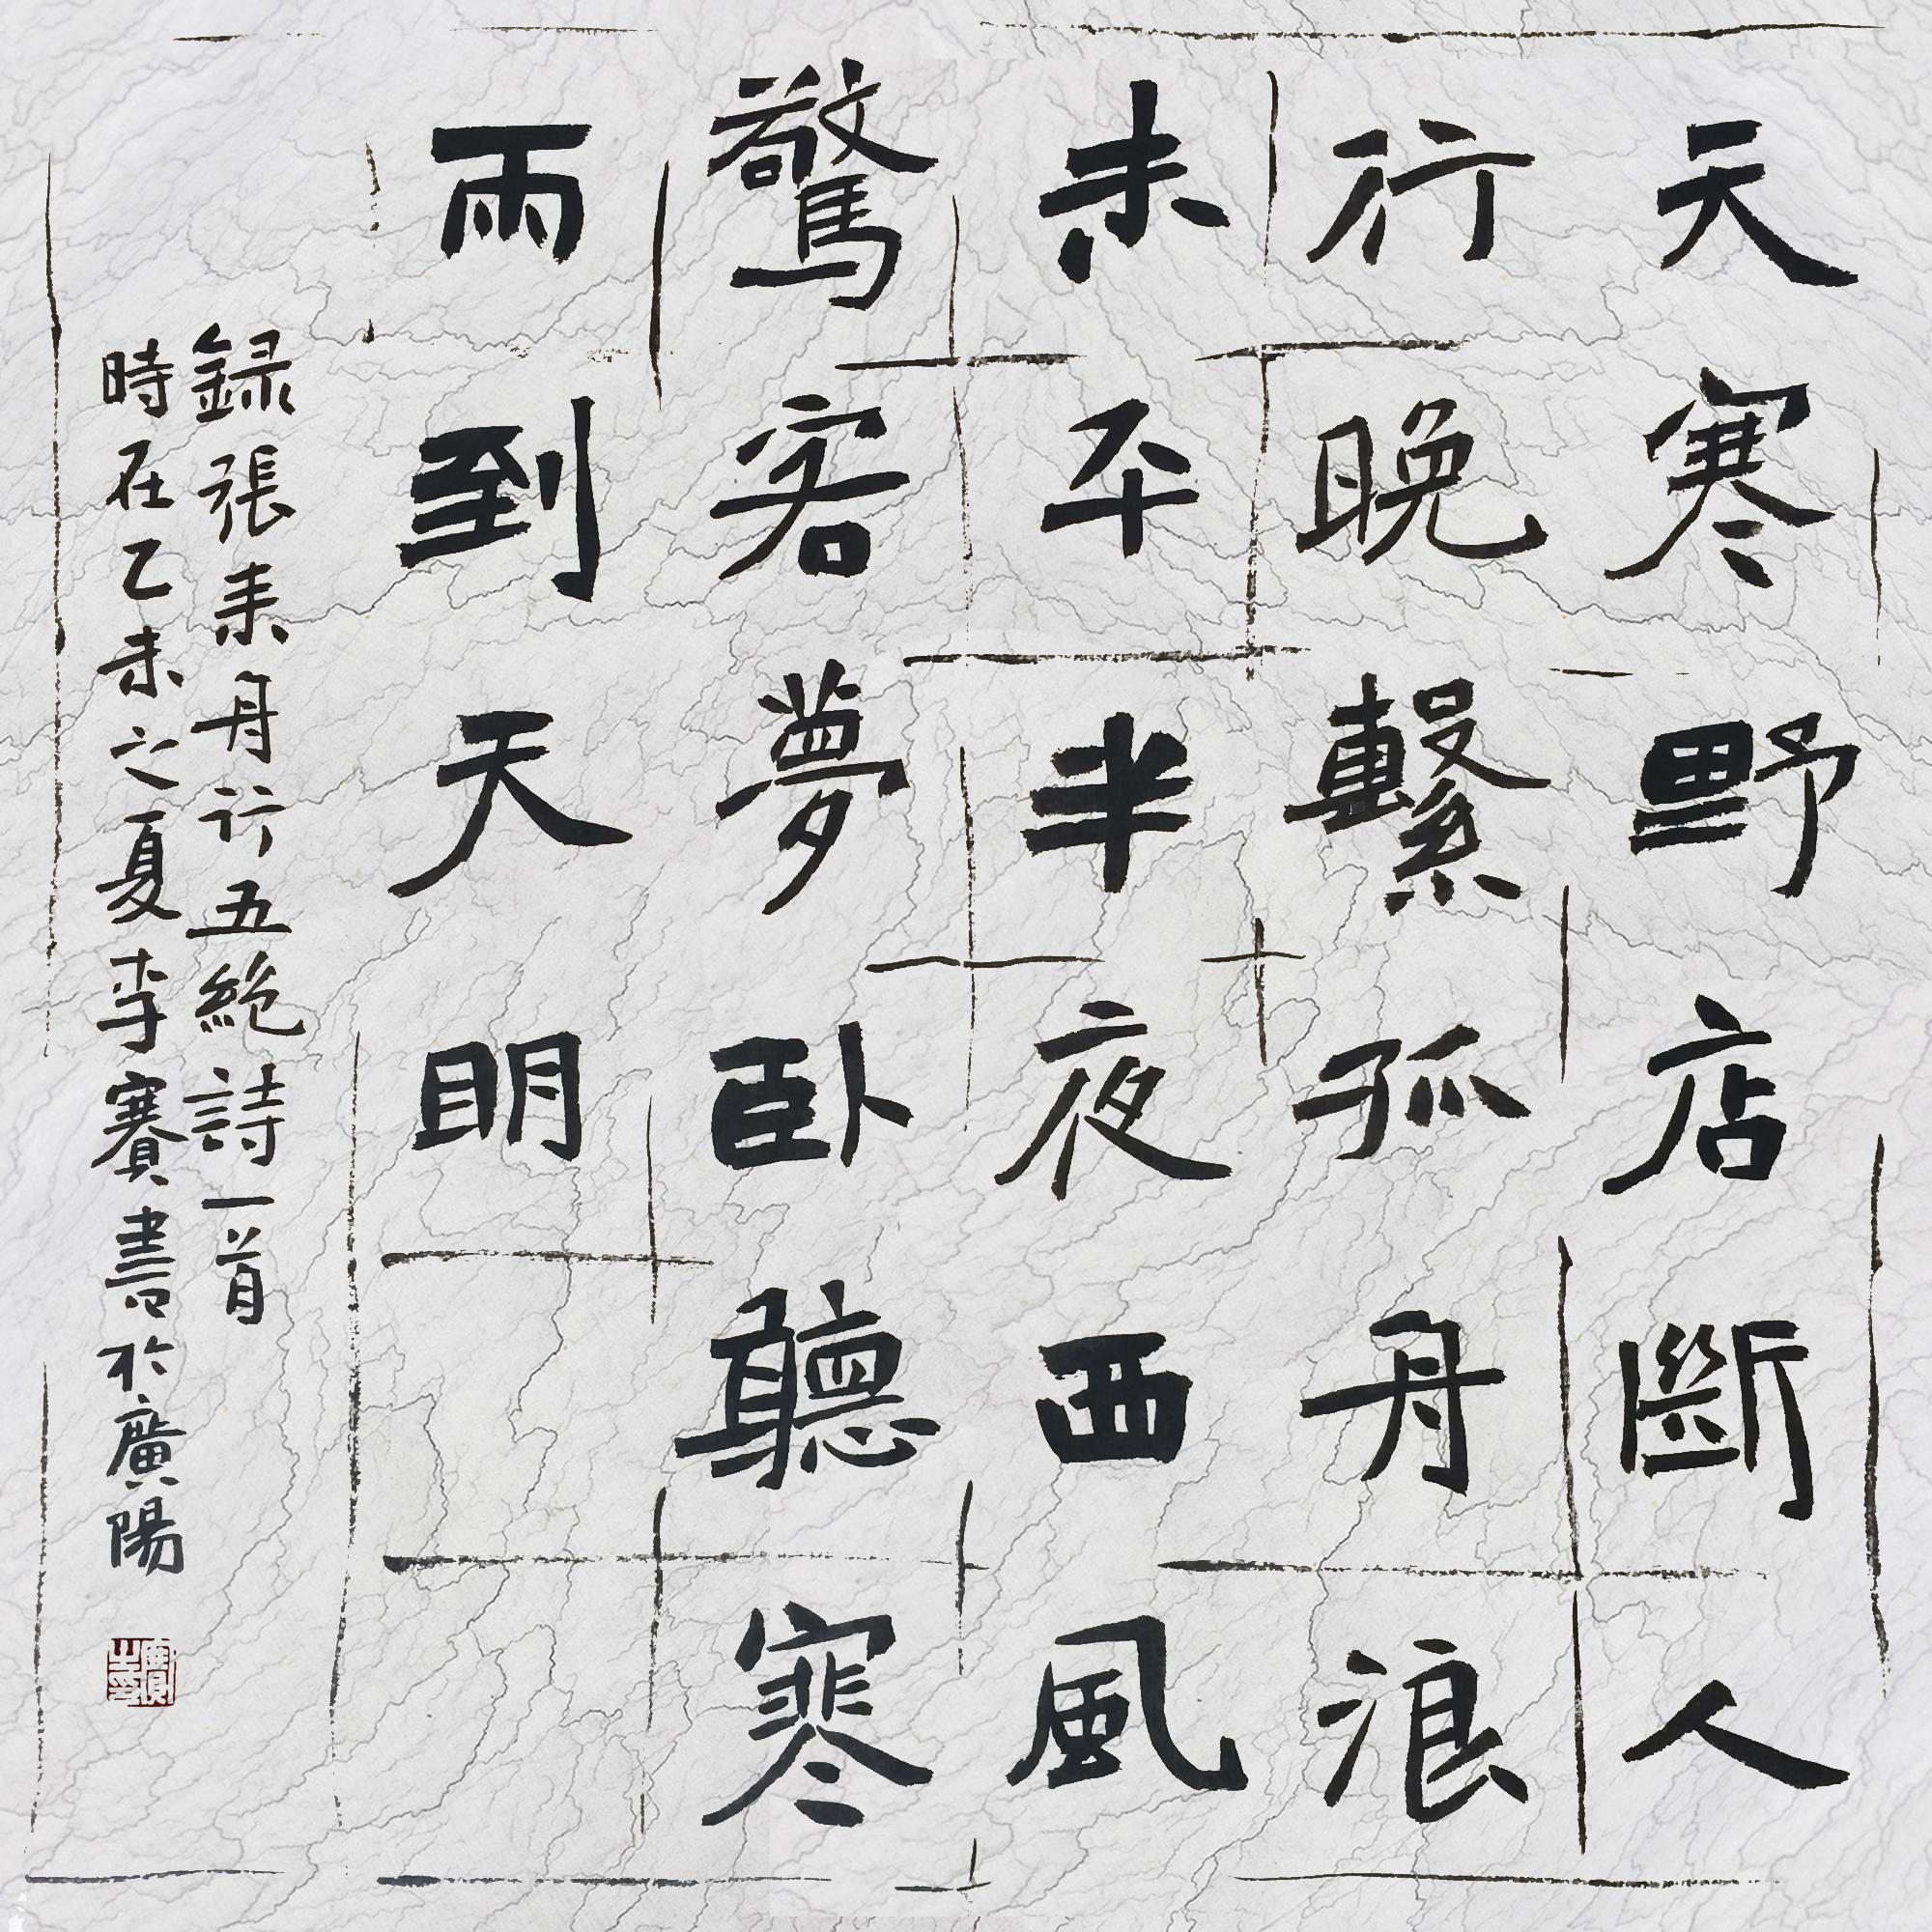 天寒野店斷人
行晚繫孤舟浪
未平半夜西風
驚客夢卧聽寒
雨到天明
録張耒舟行五絶詩一首
時在乙未之夏李賽書於廣陽